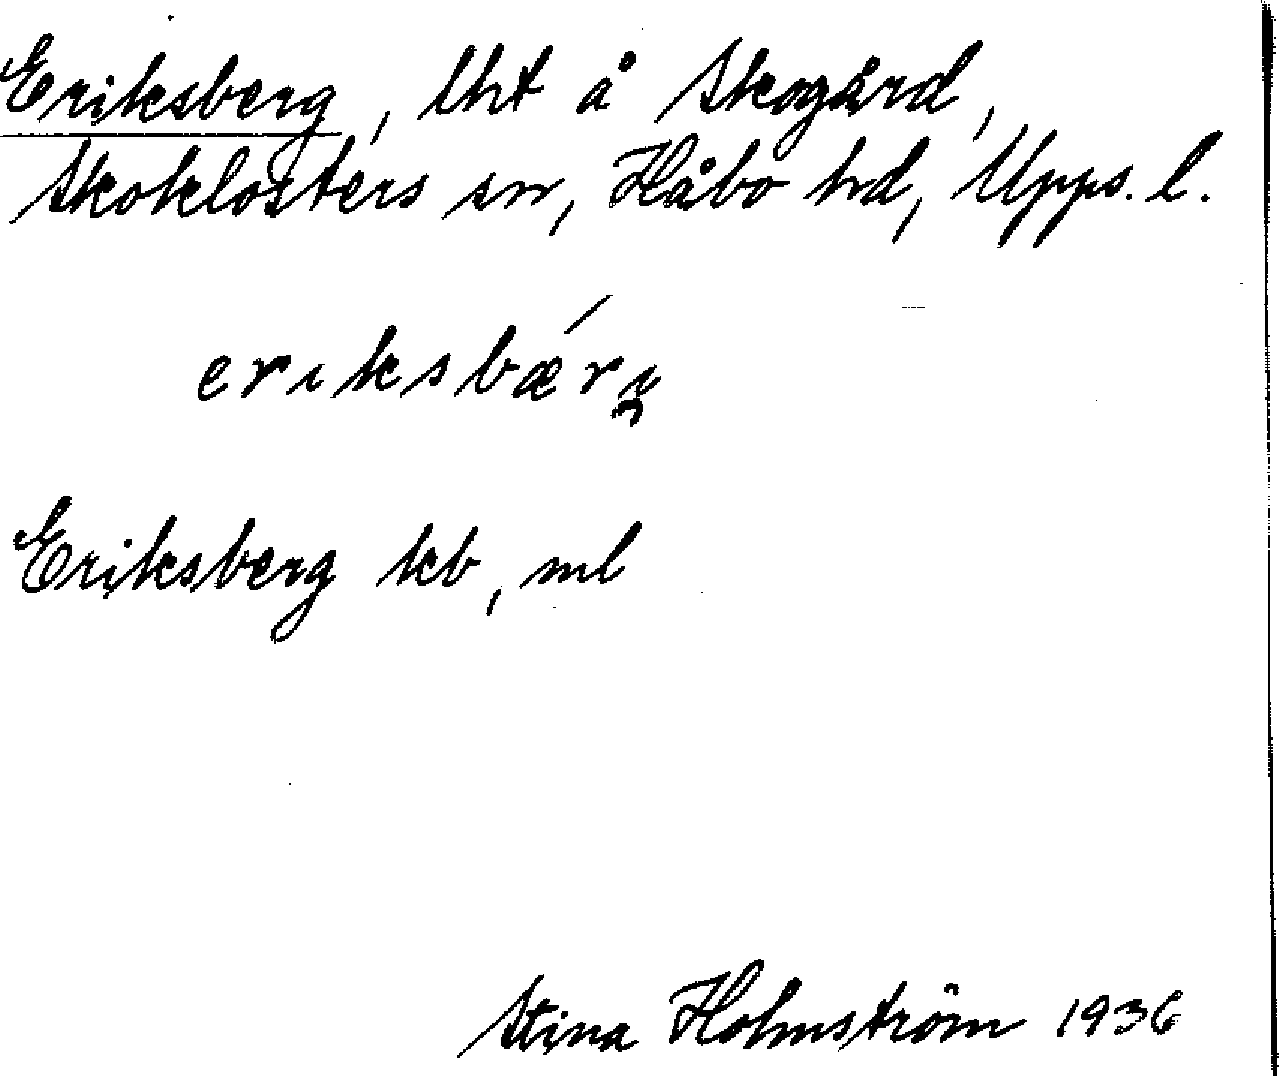 Eriksberg, lht å Skogård,
Skoklosters sn, Håbo hd, Upps. l.
eriksbærɪ̯
Eriksberg kb, ml
Stina Holmström 1936